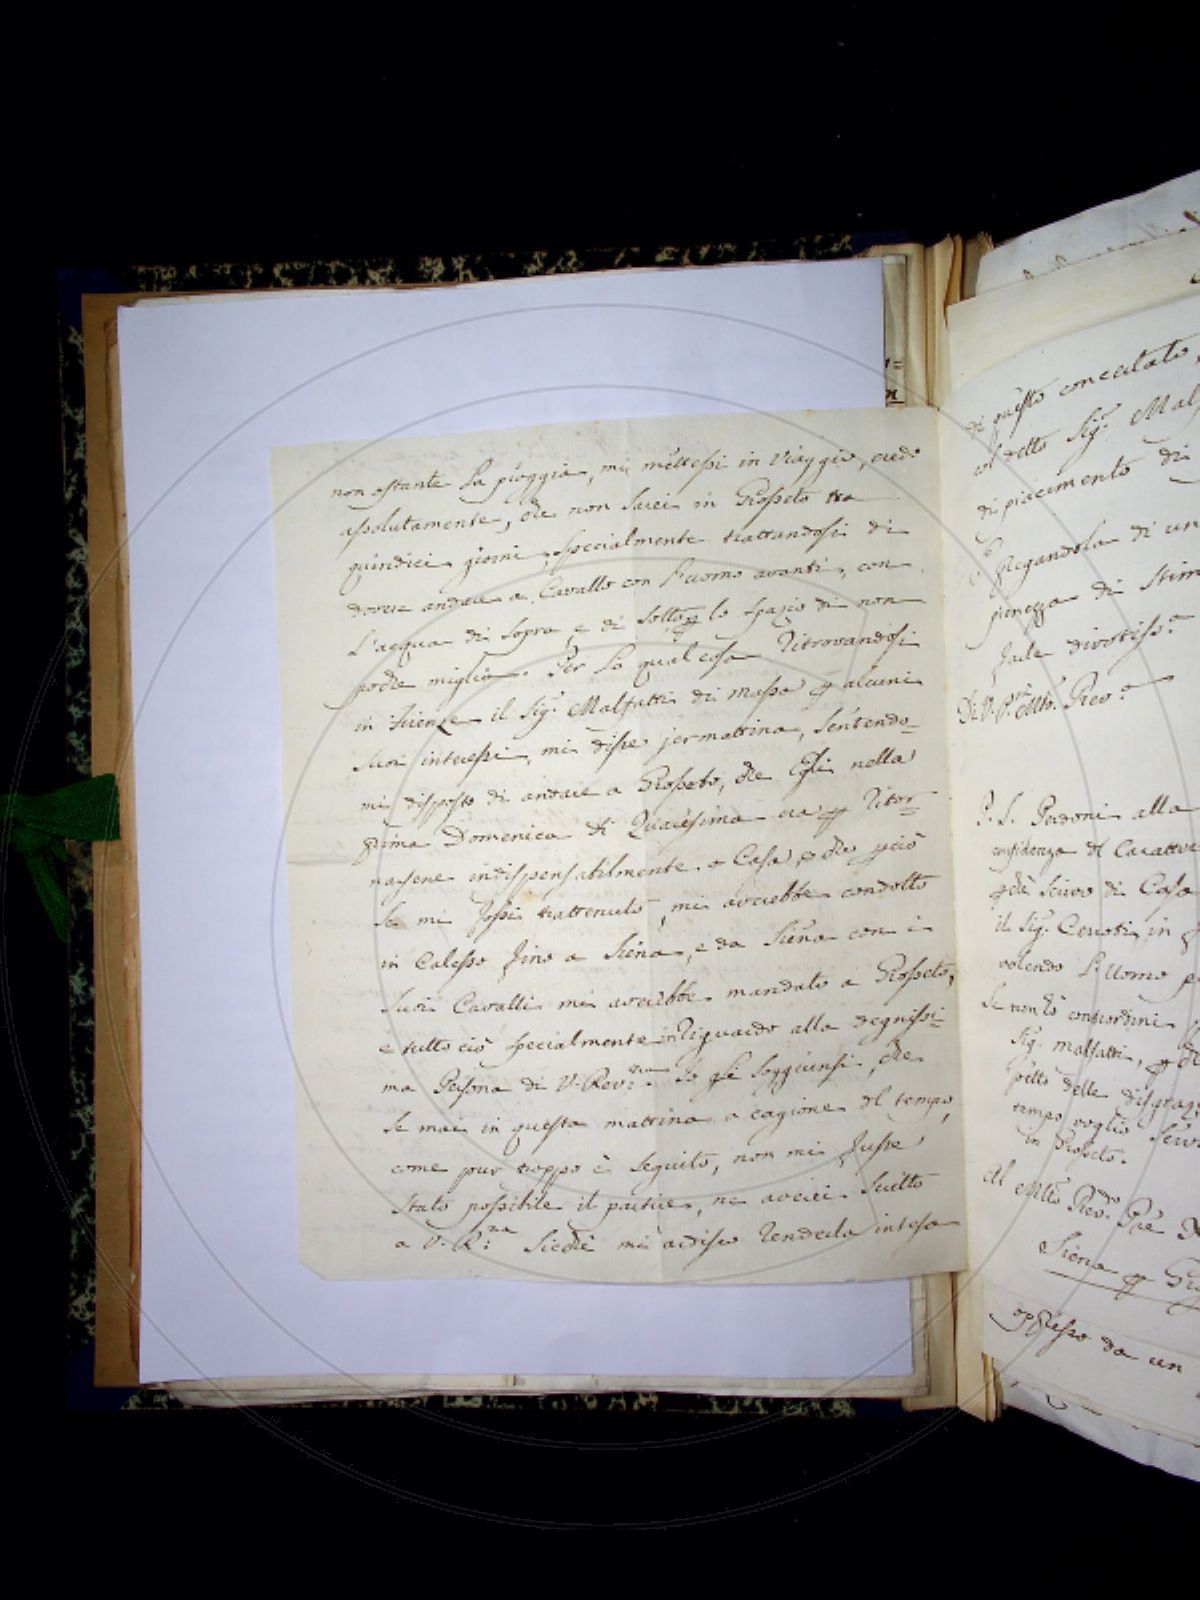 non ostante la pioggia, mi mettessi in viaggio, credo
assolutamente, che non sarei in Grosseto tra
quindici giorni, specialmente trattandosi di
dover andare a Cavallo con l'uomo avanti, con
l'acqua di sopra, e di sotto p lo spazio di non
poche miglia. Per la qual cosa ritrovandosi
in Firenze il Sig.r Malfatti di Massa p alcuni
suoi interessi, mi disse jermattina, sentendo-
mi disposto di andare a Grosseto, che Egli nella
prima Domenica di Quaresima era p ritor=
narsene indispensabilmente a Casa, e che pciò
se mi fossi trattenuto, mi avrebbe condotto
in Calesso fino a Siena, e da Siena con i
suoi Cavalli mi avrebbe mandato a Grosseto,
e tutto ciò specialmente in riguardo alla degnissi=
ma Persona di V. Rev.ma Io gli soggiunsi, che
se mai in questa mattina a cagione del tempo,
come pur troppo è seguito, non mi fusse
stato possibile il partire, ne averei scritto
a V. R.ma Sicchè mi ardisco renderla intesa
di questo concertato,
col detto Sig.r Mal
di piacimento di
pregandola di un
pienezza di stim
Di V. P. M.to Rev.
P. S. Perdoni alla
confidenza del Carattere
pchè scrivo di Casa
il Sig.r Ceroti, in
volendo l'Uomo
se non ho contrordini
Sig. Malfatti, p che
petto delle disgraz
tempo voglio
in Grosseto.
Al M.to Rev.do Pre
Siena p Gro
appresso da un